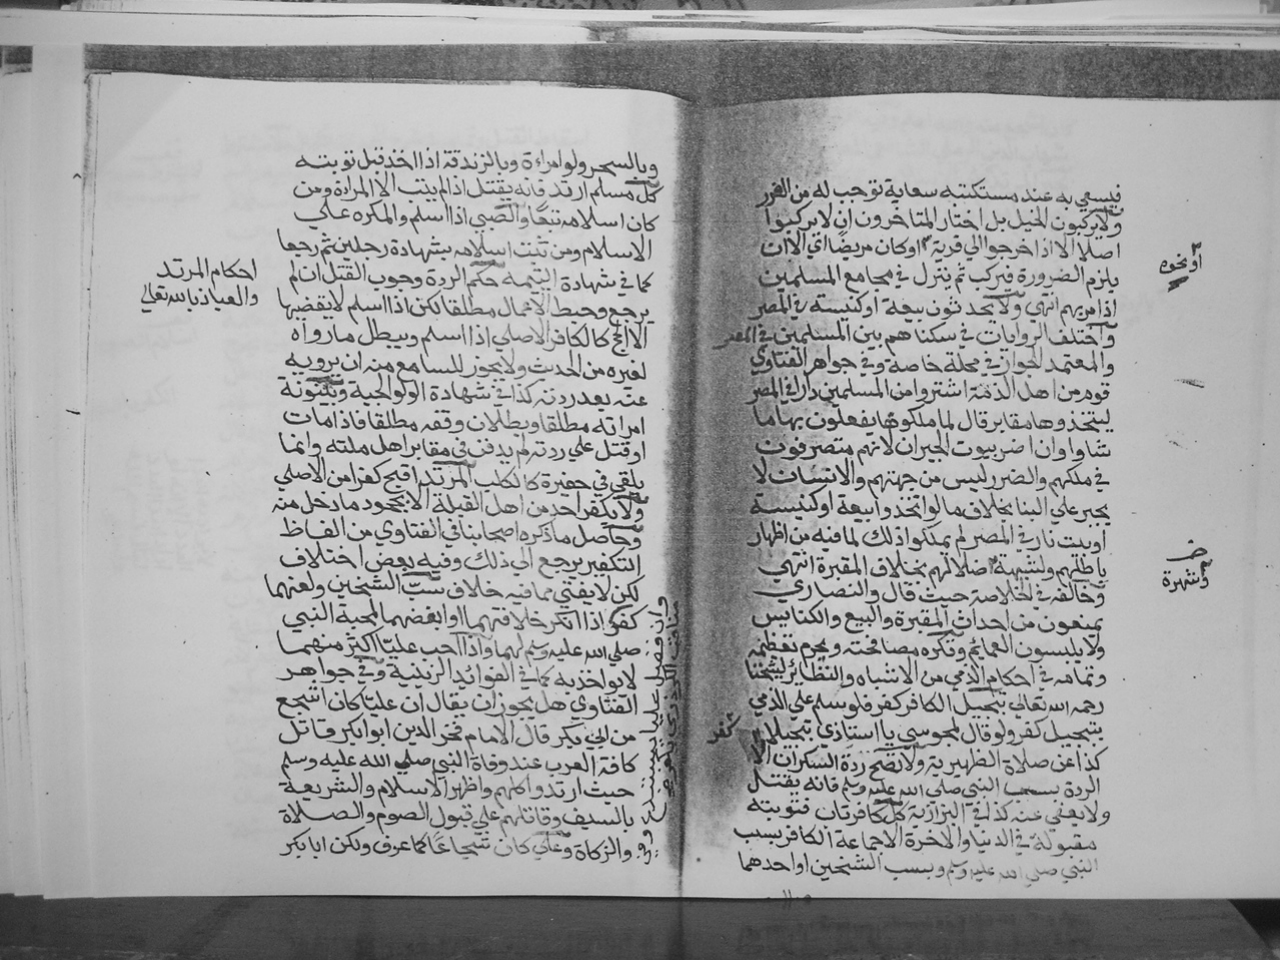 فيسعي به عند مستكتبه سعاية توجب له من الضرر
ولا يركبون الخيل بل اختار المتاخرون ان لا يركبوا
اصلا الا اذا خرجوا الي قرية او كان مريضا اي الا ان
يلزم الضرورة فيركب ثم ينزل في مجامع المسلمين
اذا مر بهم انتهي ولا يحدثون بيعة او كنيسة في المصر
واختلف الروايات في سكناهم بين المسلمين في المصر
والمعتمد الجواز في محلة خاصة وفي جواهر الفتاوي
قوم من اهل الذمة اشتروا من المسلمين دارا في المصر
ليتخذوها مقابر قال لما ملكوها يفعلون بها ما
شاوا وان اضر ببيوت الجيران لانهم متصرفون
في ملكهم والضرر ليس من جهتهم والانسان لا
يجبر علي البنا بخلاف ما لو اتخذوا بيعة او كنيسة
او بيت نار في المصر لم يملكوا ذلك لما فيه من اظهار
باطلهم ولشبهة ضلالهم بخلاف المقبرة انتهي
وخالفه في الخلاصة حيث قال والنصاري
يمنعون من احداث المقبرة والبيع والكنايس
ولا يلبسون العمائم وتكره مصافحته ويحرم تعظيمه
وتمامه في احكام الذمي من الاشباه والنظائر لشيخنا
رحمه الله تعالي تبجيل الكافر كفر فلو سلم علي الذمي
بتبجيل كفر ولو قال لمجوسي يا استاذي تبجيلا
كفر
كذا عن صلاة الظهيرية ولا تصح ردة السكران الا
الردة بسب النبي صلي الله عليه وسلم فانه يقتل
ولا يعفي عنه كذا في البزازية كل كافر تاب فتوبته
مقبولة في الدنيا والاخرة الا جماعة الكافر بسب
النبي صلي الله عليه وسلم وبسب الشيخين او احدهما
او نحوه
وشهرة
وبالسحر ولو امراءة وبالزندقة اذا اخذ قبل توبته
كل مسلم ارتد فانه يقتل اذا لم يتب الا المراة ومن
كان اسلامه تبعا والصبي اذا اسلم والمكره علي
الاسلام ومن ثبت اسلامه بشهادة رجلين ثم رجعا
كما في شهادة اليتيمة حكم الردة وجوب القتل ان لم
يرجع وحبط الاعمال مطلقا لكن اذا اسلم لا يقضيها
الا الحج كالكافر الاصلي اذا اسلم ويبطل ما رواه
لغيره من الحدث ولا يجوز للسامع منه ان يرويه
عنه بعد ردته كذا في شهادة الولوالجية وبينونة
امراته مطلقا وبطلان وقفه مطلقا فاذا مات
او قتل علي ردته لم يدفن في مقابر اهل ملته وانما
يلقي في حفيرة كالكلب المرتد اقبح كفرا من الاصلي
ولا يكفر احد من اهل القبلة الا بجحود ما دخل منه
وحاصل ما ذكره اصحابنا في الفتاوي من الفاظ
التكفير يرجع الي ذلك وفيه بعض اختلاف
لكن لا يفتي بما فيه خلاف سب الشيخين ولعنهما
كفر اذا انكر خلافتهما او ابغضهما لمحبة النبي
صلي الله عليه وسلم لهما واذا احب عليا اكثر منهما
لا يواخذ به كما في الفوائد الزينية وفي جواهر
الفتاوي هل يجوز ان يقال ان عليا كان اشجع
من ابي بكر قال الامام فخر الدين ابو بكر قاتل
كافة العرب عند وفاة النبي صلي الله عليه وسلم
حيث ارتدوا كلهم واظهر الاسلام والشريعة
بالسيف وقاتلهم علي قبول الصوم والصلاة
والزكاة وعلي كان شجاعا كما عرف ولكن ابا بكر
احكام المرتد
والعياذ بالله تعالي
وان فضل عليا